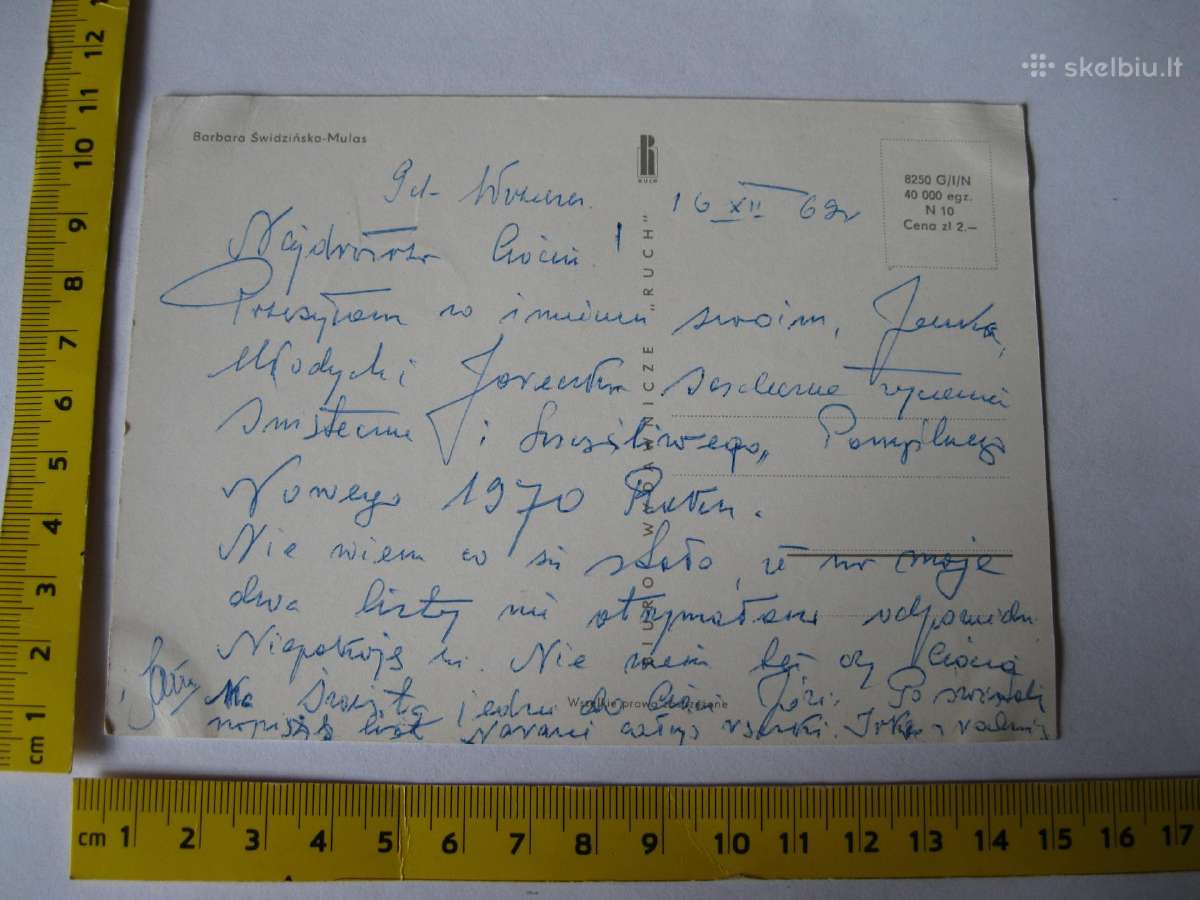 skelbiu.lt
Barbara Świdzińska-Mulas
RUCH
8250 G/I/N
40 000 egz.
N 10
Cena zł 2.—
16 XII 69r
Najdroższa Ciociu!
Przesyłam w imieniu swoim, Janka,
Młodych i serdeczne życzenia
świąteczne i Szczęśliwego, Pomyślnego
Nowego 1970 Roku.
Nie wiem co się stało, że na moje
dwa listy nie otrzymałam odpowiedzi.
Niepokoję się. Nie wiem też czy Ciocia
Na Święta jedzie do Cioci Józi. Po świętach
napiszę list. Narazie całuję rączki. Irka z rodziną
BIURO WYDAWNICZE „RUCH"
Wszelkie prawa zastrzeżone
cm 1 2 3 4 5 6 7 8 9 10 11 12
cm 1 2 3 4 5 6 7 8 9 10 11 12 13 14 15 16 17